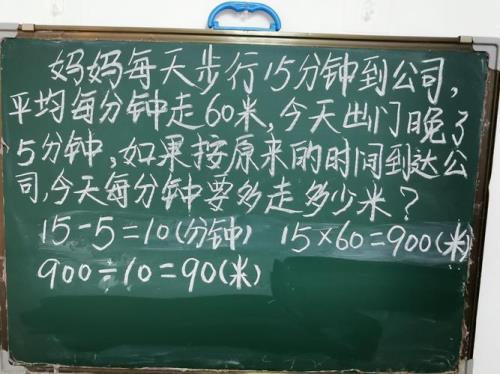 妈妈每天步行15分钟到公司,
平均每分钟走60米,今天出门晚了
5分钟,如果按原来的时间到达公
司,今天每分钟要多走多少米?
15-5=10(分钟) 15×60=900(米)
900÷10=90(米)